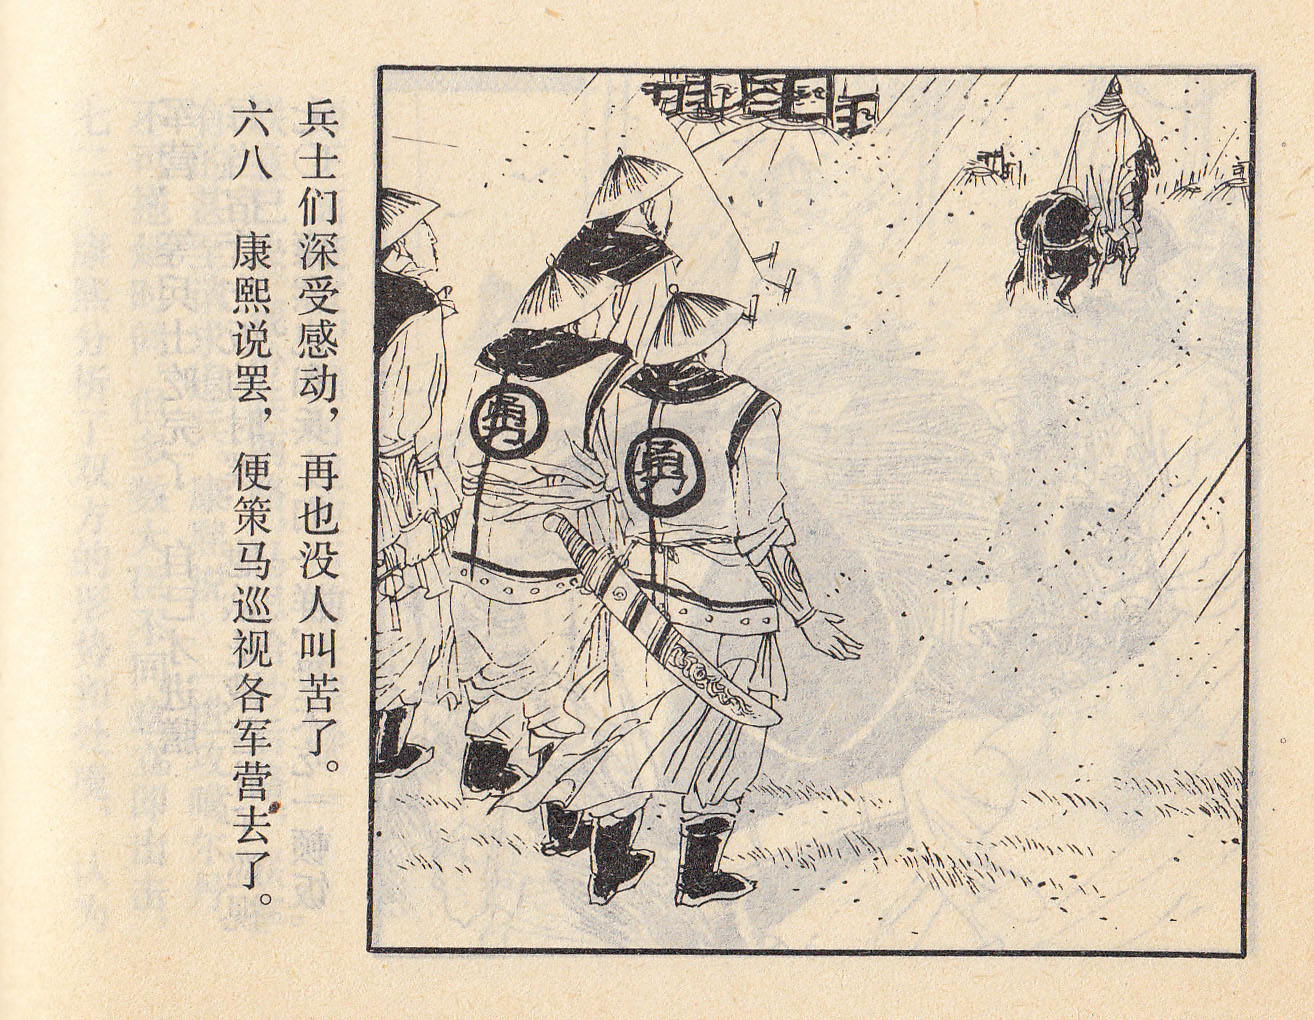 六八　康熙说罢，便策马巡视各军营去了。
兵士们深受感动，再也没人叫苦了。
勇
勇